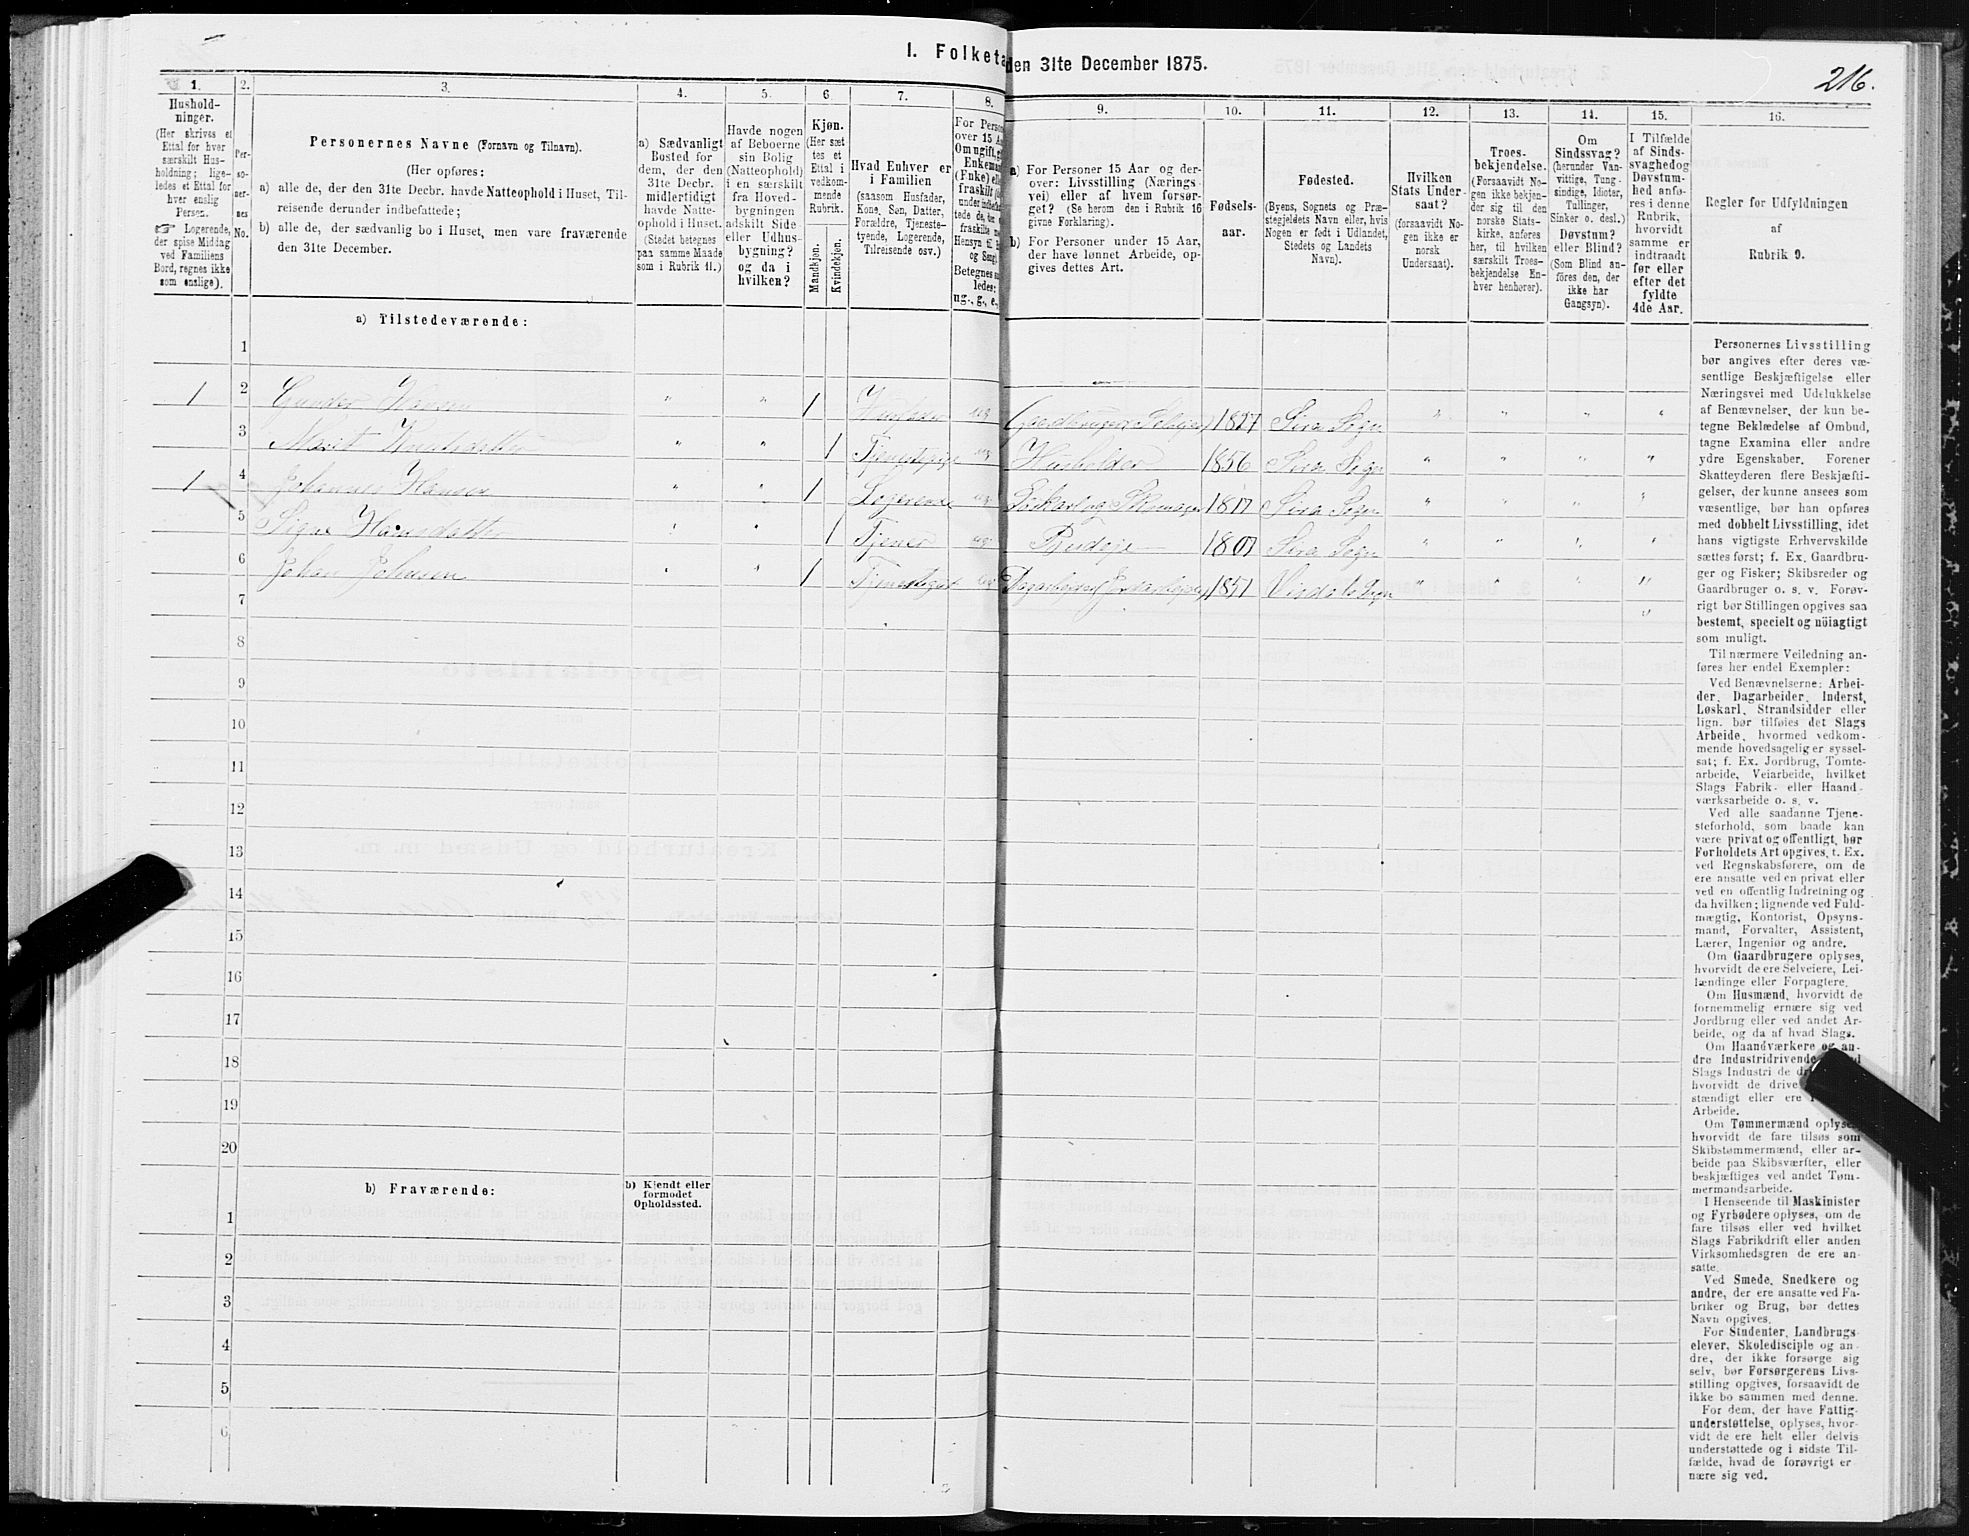 I. Folketa
den 31te December 1875.
216.
1.
Hushold-
ninger.
(Her skrives et
Ettal for hver
særskilt Hus-
holdning; lige-
ledes et Ettal for
hver enslig
Person.
☞ Logerende,
der spise Middag
ved Familiens
Bord, regnes ikke
som enslige).
2.
Per-
so-
ner-
nes
No.
3.
Personernes Navne (Fornavn og Tilnavn).
(Her opføres:
a) alle de, der den 31te Decbr. havde Natteophold i Huset, Til-
reisende derunder indbefattede;
b) alle de, der sædvanlig bo i Huset, men vare fraværende
den 31te December.
4.
a) Sædvanligt
Bosted for
dem, der den
31te Decbr.
midlertidigt
havde Natte-
ophold i Huset.
(Stedet betegnes
paa samme Maade
som i Rubrik 11.)
5.
Havde nogen
af Beboerne
sin Bolig
(Natteophold)
i en særskilt
fra Hoved-
bygningen
adskilt Side
eller Udhus-
bygning?
og da i
hvilken?
6.
Kjøn.
(Her sæt
tes et
Ettal i
vedkom-
mende
Rubrik.
Mandkjøn.
Kvindekjøn.
7.
Hvad Enhver er
i Familien
(saasom Husfader,
Kone, Søn, Datter,
Forældre, Tjeneste-
tyende, Logerende,
Tilreisende osv.)
8.
For Perso
over 15 A
Omugift, g
Enkeman
(Fnke) elle
fraskilt (
under indbef
ledes;
ug., g., e.,
9.
a) For Personer 15 Aar og der-
over: Livsstilling (Nærings-
vei) eller af hvem forsør-
get? (Se herom den i Rubrik 16
givne Forklaring).
b) For Personer under 15 Aar,
der have lønnet Arbeide, op-
gives dettes Art.
10.
Fødsels-
aar.
11.
Fødested.
(Byens, Sognets og Præ-
stegjeldets Navn eller, hvis
Nogen er født i Udlandet,
Stedets og Landets
Navn).
12.
Hvilken
Stats Under-
saat?
(forsaavidt No-
gen ikke er
norsk
Undersaat).
13.
Troes-
bekjendelse.
(Forsaavidt No-
gen ikke bekjen-
der sig til den
norske Stats-
kirke, anføres
her, til hvilken
særskilt Troes-
bekjendelse En-
hver henhører).
14.
Om
Sindssvag?
(herunder Van-
vittige, Tung-
sindige, Idioter,
Tullinger,
Sinker o. desl.)
Døvstum?
eller Blind?
(Som Blind an-
føres den, der
ikke har
Gangsyn).
15.
I Tilfælde
af Sinds-
svaghed og
Døvstum-
hed anfø-
res i denne
Rubrik,
hvorvidt
samme er
indtraadt
før eller
efter det
fyldte
4de Aar.
16.
Regler for Udfyldningen
af
Rubrik 9.
a) Tilstedeværende:
1
1 2 Gunder Hansen " " 1 Husfader ug Gaardbruger Selveier 1827 Sira Sogn " " " "
3 Marit Knutsdatter " " 1 Tjenestepige ug Husholder 1856 Sira Sogn " " " "
1 4 Johannes Hansen " " 1 Logerende ug Løskarl og Skomager 1817 Sira Sogn " " " "
5 Signe Hansdatter " " 1 Tjener ug 1807 Sira Sogn " " " "
6 Johan Johnsen " " 1 Tjenestegut ug Dagarbeider 1857 " " " "
7
8
9
10
11
12
13
14
15
16
17
18
19
20
b) Fraværende:
b) Kjendt eller
formodet
Opholdssted.
1
2
3
4
5
6
Personernes Livsstilling
bør angives efter deres væ-
sentlige Beskjæftigelse eller
Næringsvei med Udelukkelse
af Benævnelser, der kun be-
tegne Beklædelse af Ombud,
tagne Examina eller andre
ydre Egenskaber. Forener
Skatteyderen flere Beskjæfti-
gelser, der kunne ansees som
væsentlige, bør han opføres
med dobbelt Livsstilling, idet
hans vigtigste Erhvervskilde
sættes først; f. Ex. Gaardbru-
ger og Fisker; Skibsreder og
Gaardbruger o. s. v. Forøv-
rigt bør Stillingen opgives saa
bestemt, specielt og nöiagtigt
som muligt.
Til nærmere Veiledning an-
føres her endel Exempler:
Ved Benævnelserne: Arbei-
der, Dagarbeider, Inderst,
Løskarl, Strandsidder eller
lign. bør tilføies det Slags
Arbeide, hvormed vedkom-
mende hovedsagelig er syssel-
sat; f. Ex. Jordbrug, Tomte-
arbeide, Veiarbeide, hvilket
Slags Fabrik- eller Haand-
værksarbeide o. s. v.
Ved alle saadanne Tjene-
steforhold, som baade kan
være privat og offentligt, bør
Forholdets Art opgives, t. Ex.
ved Regnskabsførere, om de
ere ansatte ved en privat eller
ved en offentlig Indretning og
da hvilken; lignende ved Fuld-
mægtig, Kontorist, Opsyns-
mand, Forvalter, Assistent,
Lærer, Ingeniør og andre.
Om Gaardbrugere oplyses,
hvorvidt de ere Selveiere, Lei-
lændinge eller Forpagtere.
Om Husmænd, hvorvidt de
fornemmelig ernære sig ved
Jordbrug eller ved andet Ar-
beide, og da af hvad Slags.
Om Haandværkere og an-
dre Industridrivende
Slags Industri de
hvorvidt de drive
stændigt eller ere
Arbeide.
Om Tømmermænd oplyses,
hvorvidt de fare tilsøs som
Skibstømmermænd, eller ar-
beide paa Skibsværfter, eller
beskjæftiges ved andet Tøm-
mermandsarbeide.
I Henseende til Maskinister
og Fyrbødere oplyses, om de
fare tilsøs eller ved hvilket
Slags Fabrikdrift eller anden
Virksomhedsgren de ere an-
satte.
Ved Smede, Snedkere og
andre, der ere ansatte ved Fa-
briker og Brug, bør dettes
Navn opgives.
For Studenter, Landbrugs-
elever, Skoledisciple og an-
dre, der ikke forsørge sig
selv, bør Forsørgerens Livs-
stilling opgives, forsaavidt de
ikke bo sammen med denne.
For dem, der have Fattig-
understøttelse, oplyses, hvor-
vidt de ere helt eller delvis
understøttede og i sidste Til-
fælde, hvad de forøvrigt er
nære sig ved.